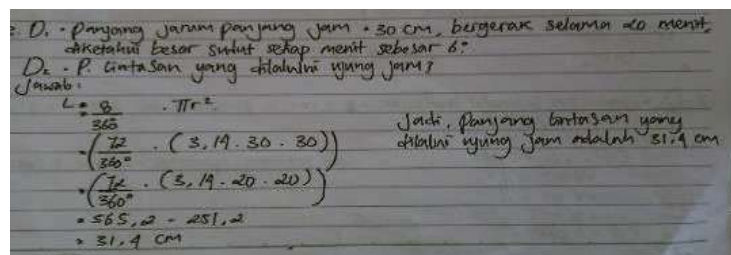 D₁ · Panjang jarum panjang jam = 30 cm, bergerak selama 20 menit,
diketahui besar sudut setiap menit sebesar 6°
D₂ · P. Lintasan yang dilalui ujung jam?
Jawab:
L = θ/360 . πr²
= (72/360° . (3,14 . 30 . 30))
= (72/360° . (3,14 . 20 . 20))
= 565,2 - 251,2
= 31,4 cm
Jadi, Panjang lintasan yang
dilalui ujung jam adalah 31,4 cm